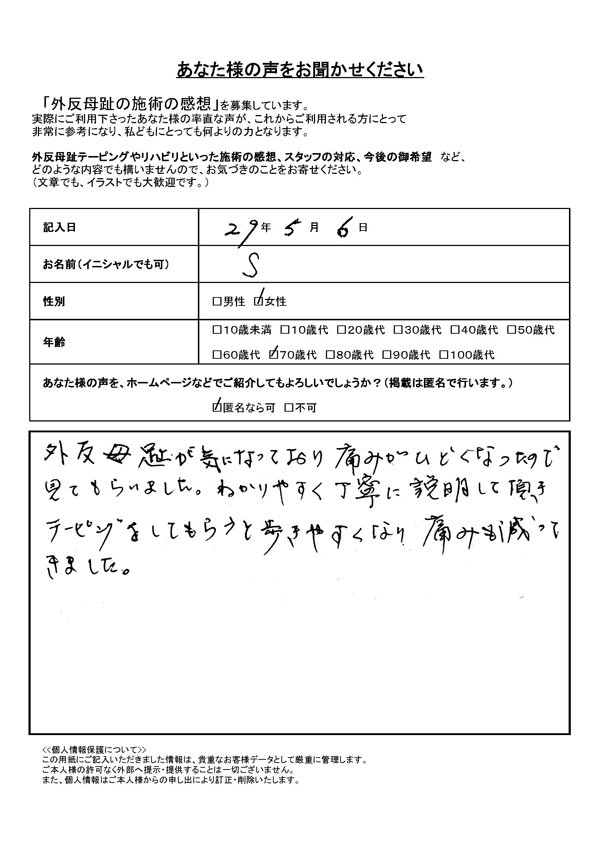 あなた様の声をお聞かせください
「外反母趾の施術の感想」を募集しています。
実際にご利用下さったあなた様の率直な声が、これからご利用される方にとって
非常に参考になり、私どもにとっても何よりの力となります。
外反母趾テーピングやリハビリといった施術の感想、スタッフの対応、今後の御希望 など、
どのような内容でも構いませんので、お気づきのことをお寄せください。
（文章でも、イラストでも大歓迎です。）
記入日 29年 5月 6日
お名前（イニシャルでも可） S
性別 □男性 ☑女性
年齢 □10歳未満 □10歳代 □20歳代 □30歳代 □40歳代 □50歳代
□60歳代 ☑70歳代 □80歳代 □90歳代 □100歳代
あなた様の声を、ホームページなどでご紹介してもよろしいでしょうか？（掲載は匿名で行います。）
☑匿名なら可 □不可
外反母趾が気になっており痛みがひどくなったので
見てもらいました。わかりやすく丁寧に説明して頂き
テーピングをしてもらうと歩きやすくなり痛みも減って
きました。
<<個人情報保護について>>
この用紙にご記入いただきました情報は、貴重なお客様データとして厳重に管理します。
ご本人様の許可なく外部へ提示・提供することは一切ございません。
また、個人情報はご本人様からの申し出により訂正・削除いたします。